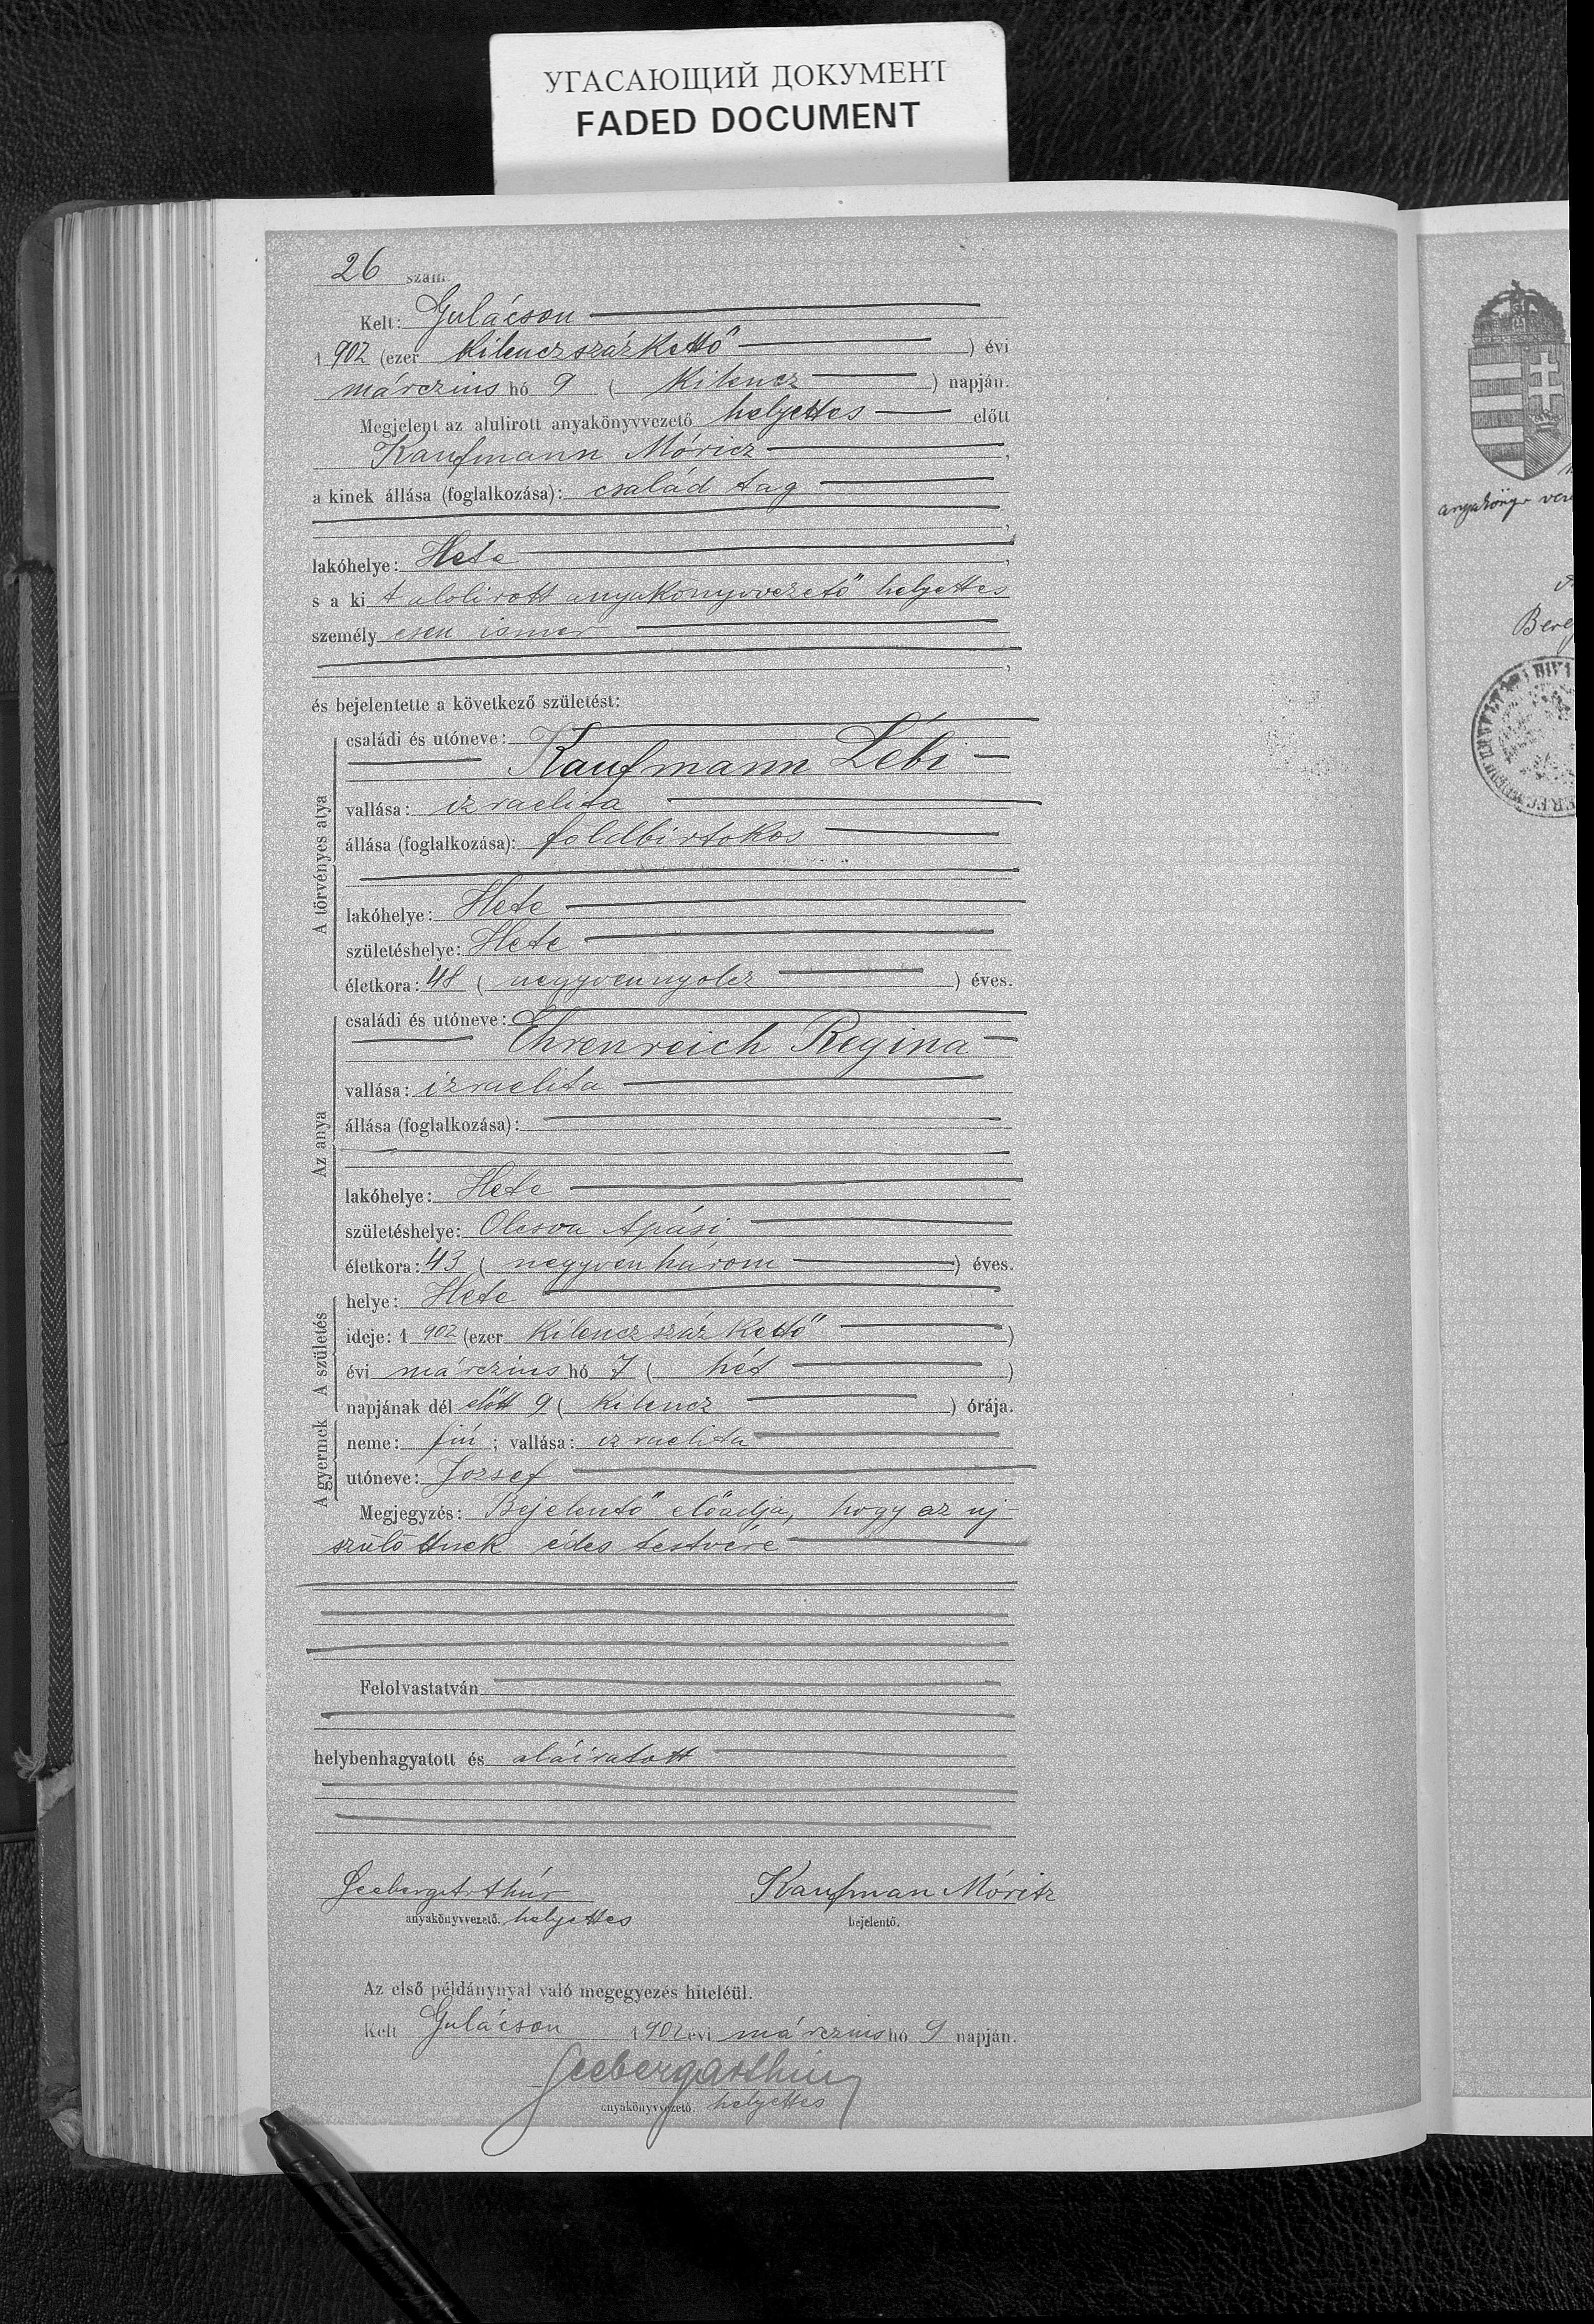 УГАСАЮЩИЙ ДОКУМЕНТ
FADED DOCUMENT
26 szám
Kelt: Gulácson
1 902 (ezer kilenczszázkettő ) évi
márczius hó 9 ( kilencz ) napján.
Megjelent az alulirott anyakönyvvezető helyettes előtt
Kaufmann Móricz ,
a kinek állása (foglalkozása): család tag
,
lakóhelye: Hete ,
s a ki t alolirott anyakönyvvezető helyettes
személy esen ismer
,
és bejelentette a következő születést:
A törvényes atya
családi és utóneve:
Kaufmann Lébi
vallása: izraelita
állása (foglalkozása): foldbirtokos
lakóhelye: Hete
születéshelye: Hete
életkora: 48 ( negyvennyolcz ) éves.
Az anya
családi és utóneve:
Ehrenreich Regina
vallása: izraelita
állása (foglalkozása):
lakóhelye: Hete
születéshelye: Olcsva Apási
életkora: 43 ( negyven három ) éves.
A születés
helye: Hete
ideje: 1 902 (ezer kilencz száz kettő )
évi márczius hó 7 ( hét )
napjának dél előtt 9 ( kilencz ) órája.
A gyermek
neme: fiú ; vallása: izraelita
utóneve: Jozsef
Megjegyzés: Bejelentő előadja, hogy az uj-
szülöttnek édes testvére
Felolvastatván
helybenhagyatott és aláiratott
Seeberg Arthúr Kaufman Móritz
anyakönyvvezető. helyettes bejelentő.
Az első példánynyal való megegyezés hiteléül.
Kelt Gulácson 1902 évi márczius hó 9 napján.
Seeberg Arthúr
anyakönyvvezető. helyettes
Bereg